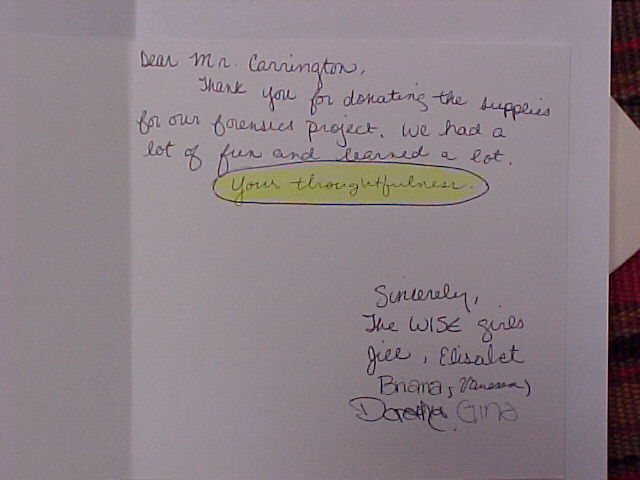 Dear Mr. Carrington,
Thank you for donating the supplies
for our forensics project. We had a
lot of fun and learned a lot.
Your thoughtfulness.
Sincerely,
The WISE girls
Jill, Elisabet
Briana, Vanessa,
Gina